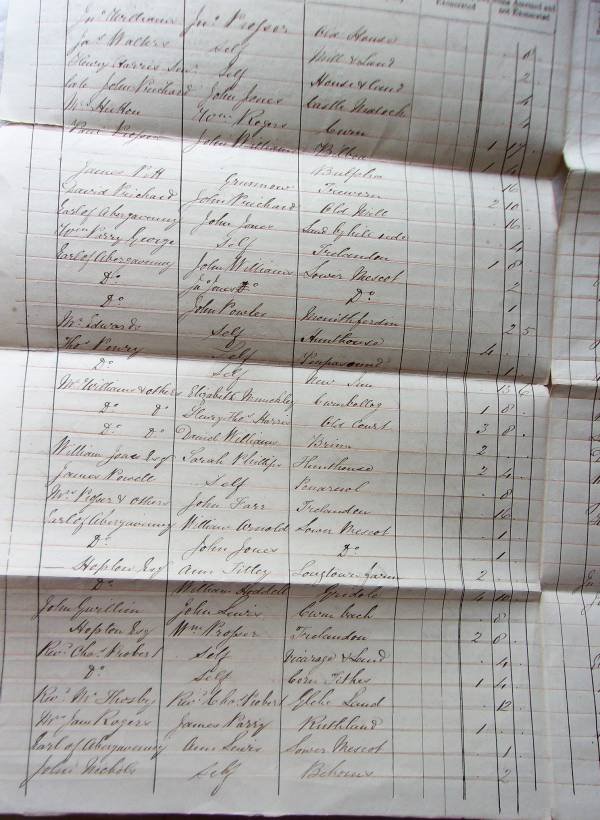 Exonerated
and not Exonerated
Jno Williams Jno Prosser Old House 6
Jas Walters Self Mill & Land 2
Henry Harris Senr Self House & Land 4
late John Prichard John Jones Castle 4
Mr Hutton Wm Rogers Cwm 1 17
Prosser John
James Pitt Trewern 16
David Prichard John Prichard Old Mill 2 10
Earl of Abergavenny John Jones Land by hill side 16
Wm Parry George Self Trelandon 4
Earl of Abergavenny John Williams Lower Mescot 1 8
Do Jno Jones Do 2
Do John Powles 1
Mr Edwards Self Hunthouse 2 5
Thos Powry Self 4
Do Self New Inn 1
Mr Williams & others Elizabeth Cwmbollog 13 6
Do Do Henry Thos Harris Old Court 1 8
Do Do David Williams 3 8
William Jones Esq Sarah Phillips Hunthouse 2
James Powell Self 2 4
Mrs & others John Farr Trelandon 8
Earl of Abergavenny William Arnold Lower Mescot 16
Do John Jones Do 1
— Hopton Esq Ann Tilley Longtown farm 1
Do William Hoddell 2
John Gwillim John Lewis Cwm bach 4 10
Hopton Esq Wm Prosser Trelandon 8
Revd Chas Probert Self Vicarage & Land 2 8
Do Self Corn Tithes 4
Revd Mr Thosby Revd Chas Probert Glebe Land 1 4
Mrs Jane Rogers James Parry Ruthland 12
Earl of Abergavenny Ann Lewis Lower Mescot 1
John Nichols Self 2